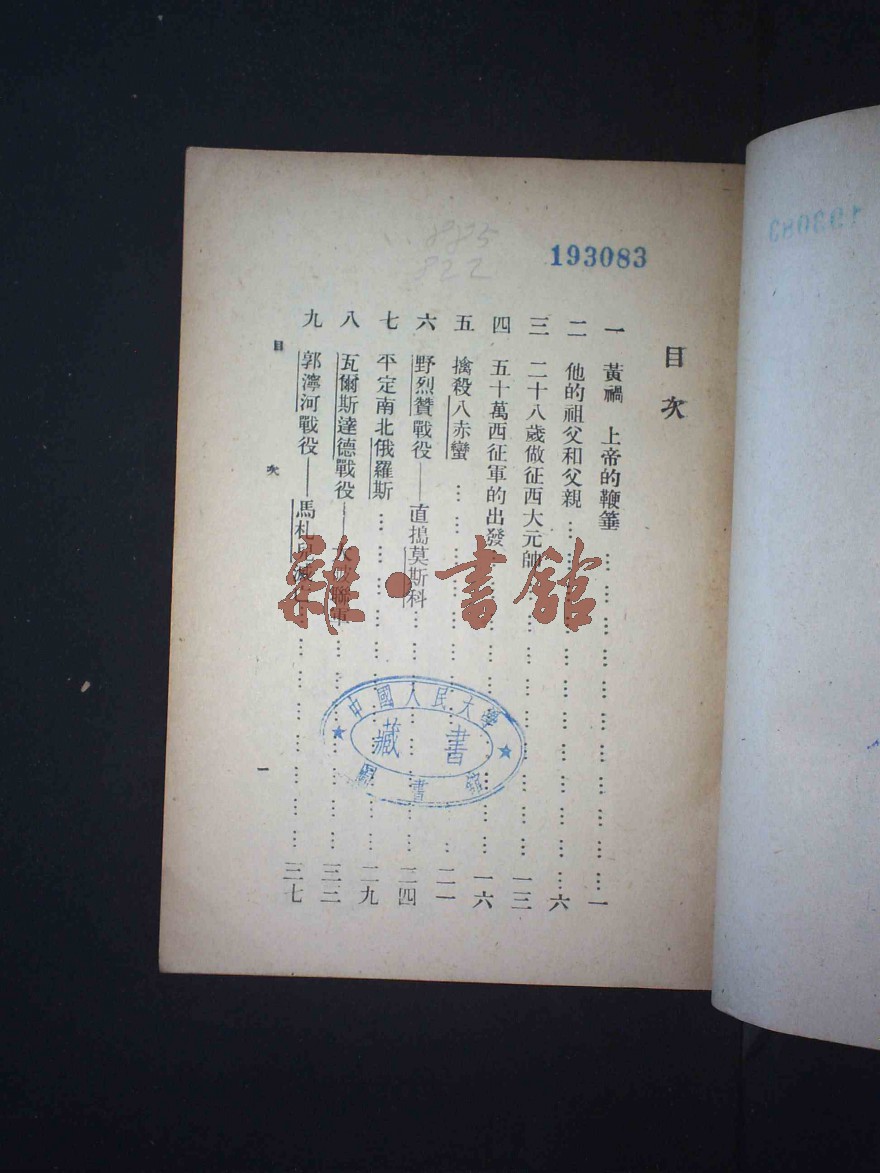 193083
885
822
目次
一 黃禍 上帝的鞭箠 … … … … … … … … … 一
二 他的祖父和父親 … … … … … … … … … 六
三 二十八歲做征西大元帥 … … … … … … … 一三
四 五十萬西征軍的出發 … … … … … … … … 一六
五 擒殺八赤蠻 … … … … … … … … … 二一
六 野烈贊戰役——直搗莫斯科 … … … … … … 二四
七 平定南北俄羅斯 … … … … … … … … … 二九
八 瓦爾斯達德戰役——大破聯軍 … … … … … 三三
九 郭濘河戰役——馬札兒滅亡 … … … … … … 三七
目 次 一
雜·書館
中國人民大學
藏書
圖書館
193083